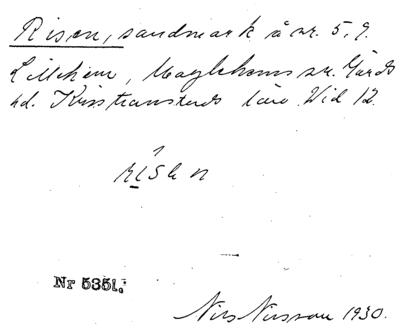 Risen, sandmark å nr. 5, 9.
Lillehem, Maglehems sn. Gärds
hd. Kristianstads län. Vid 12.
Nr 5351.
Nils Nilsson 1930.